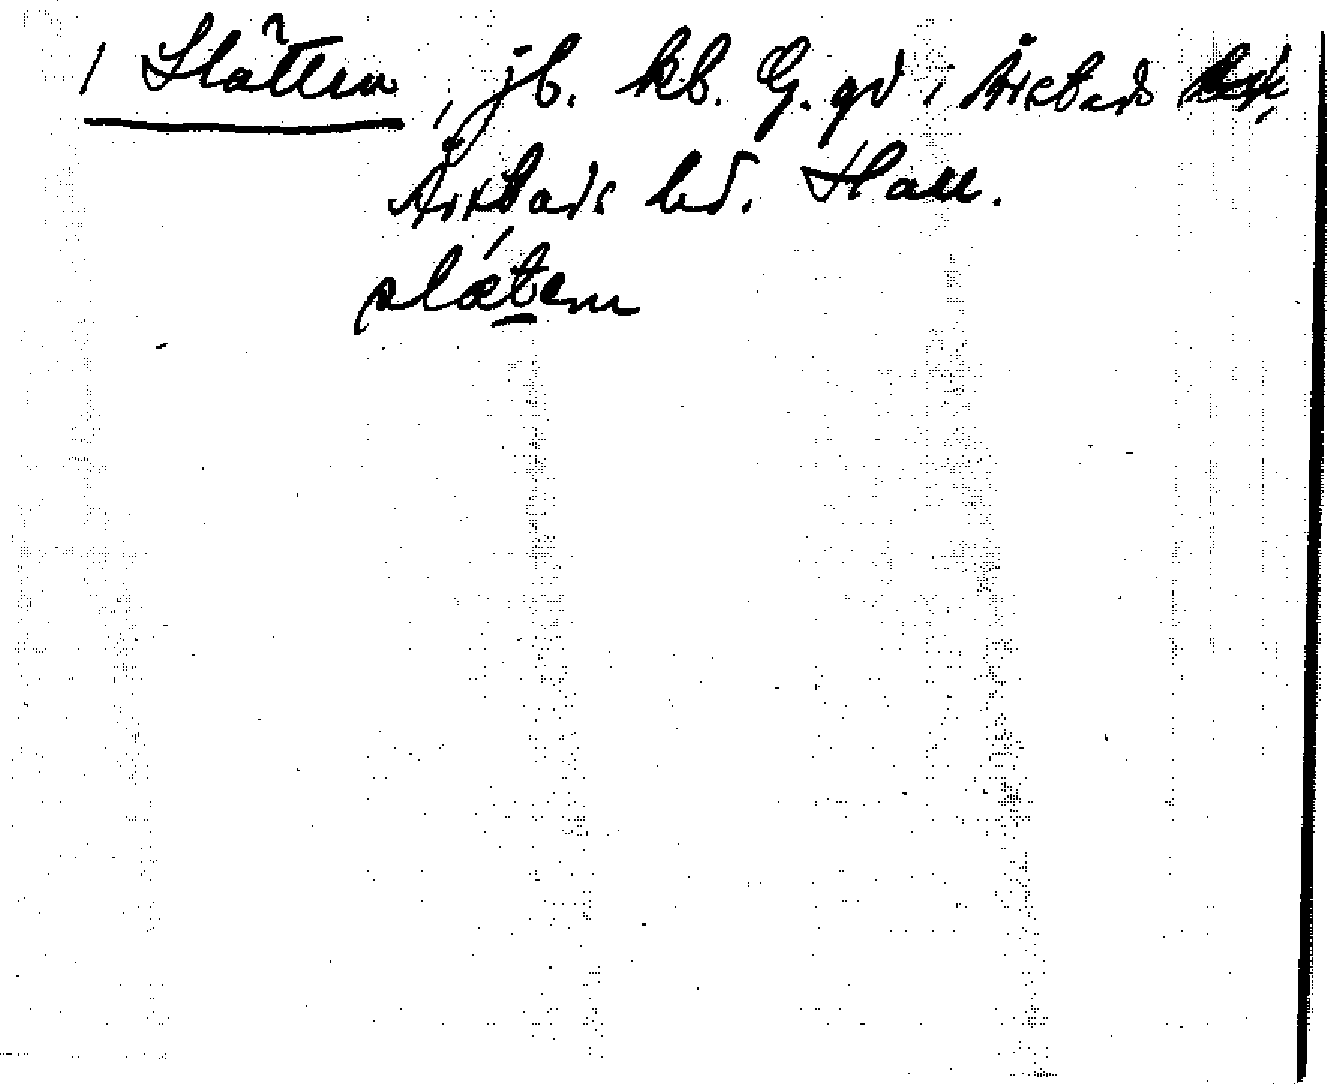 1 Slätten, jb. kb. G. gd i Årstads
Årstads hd. Hall.
slætem